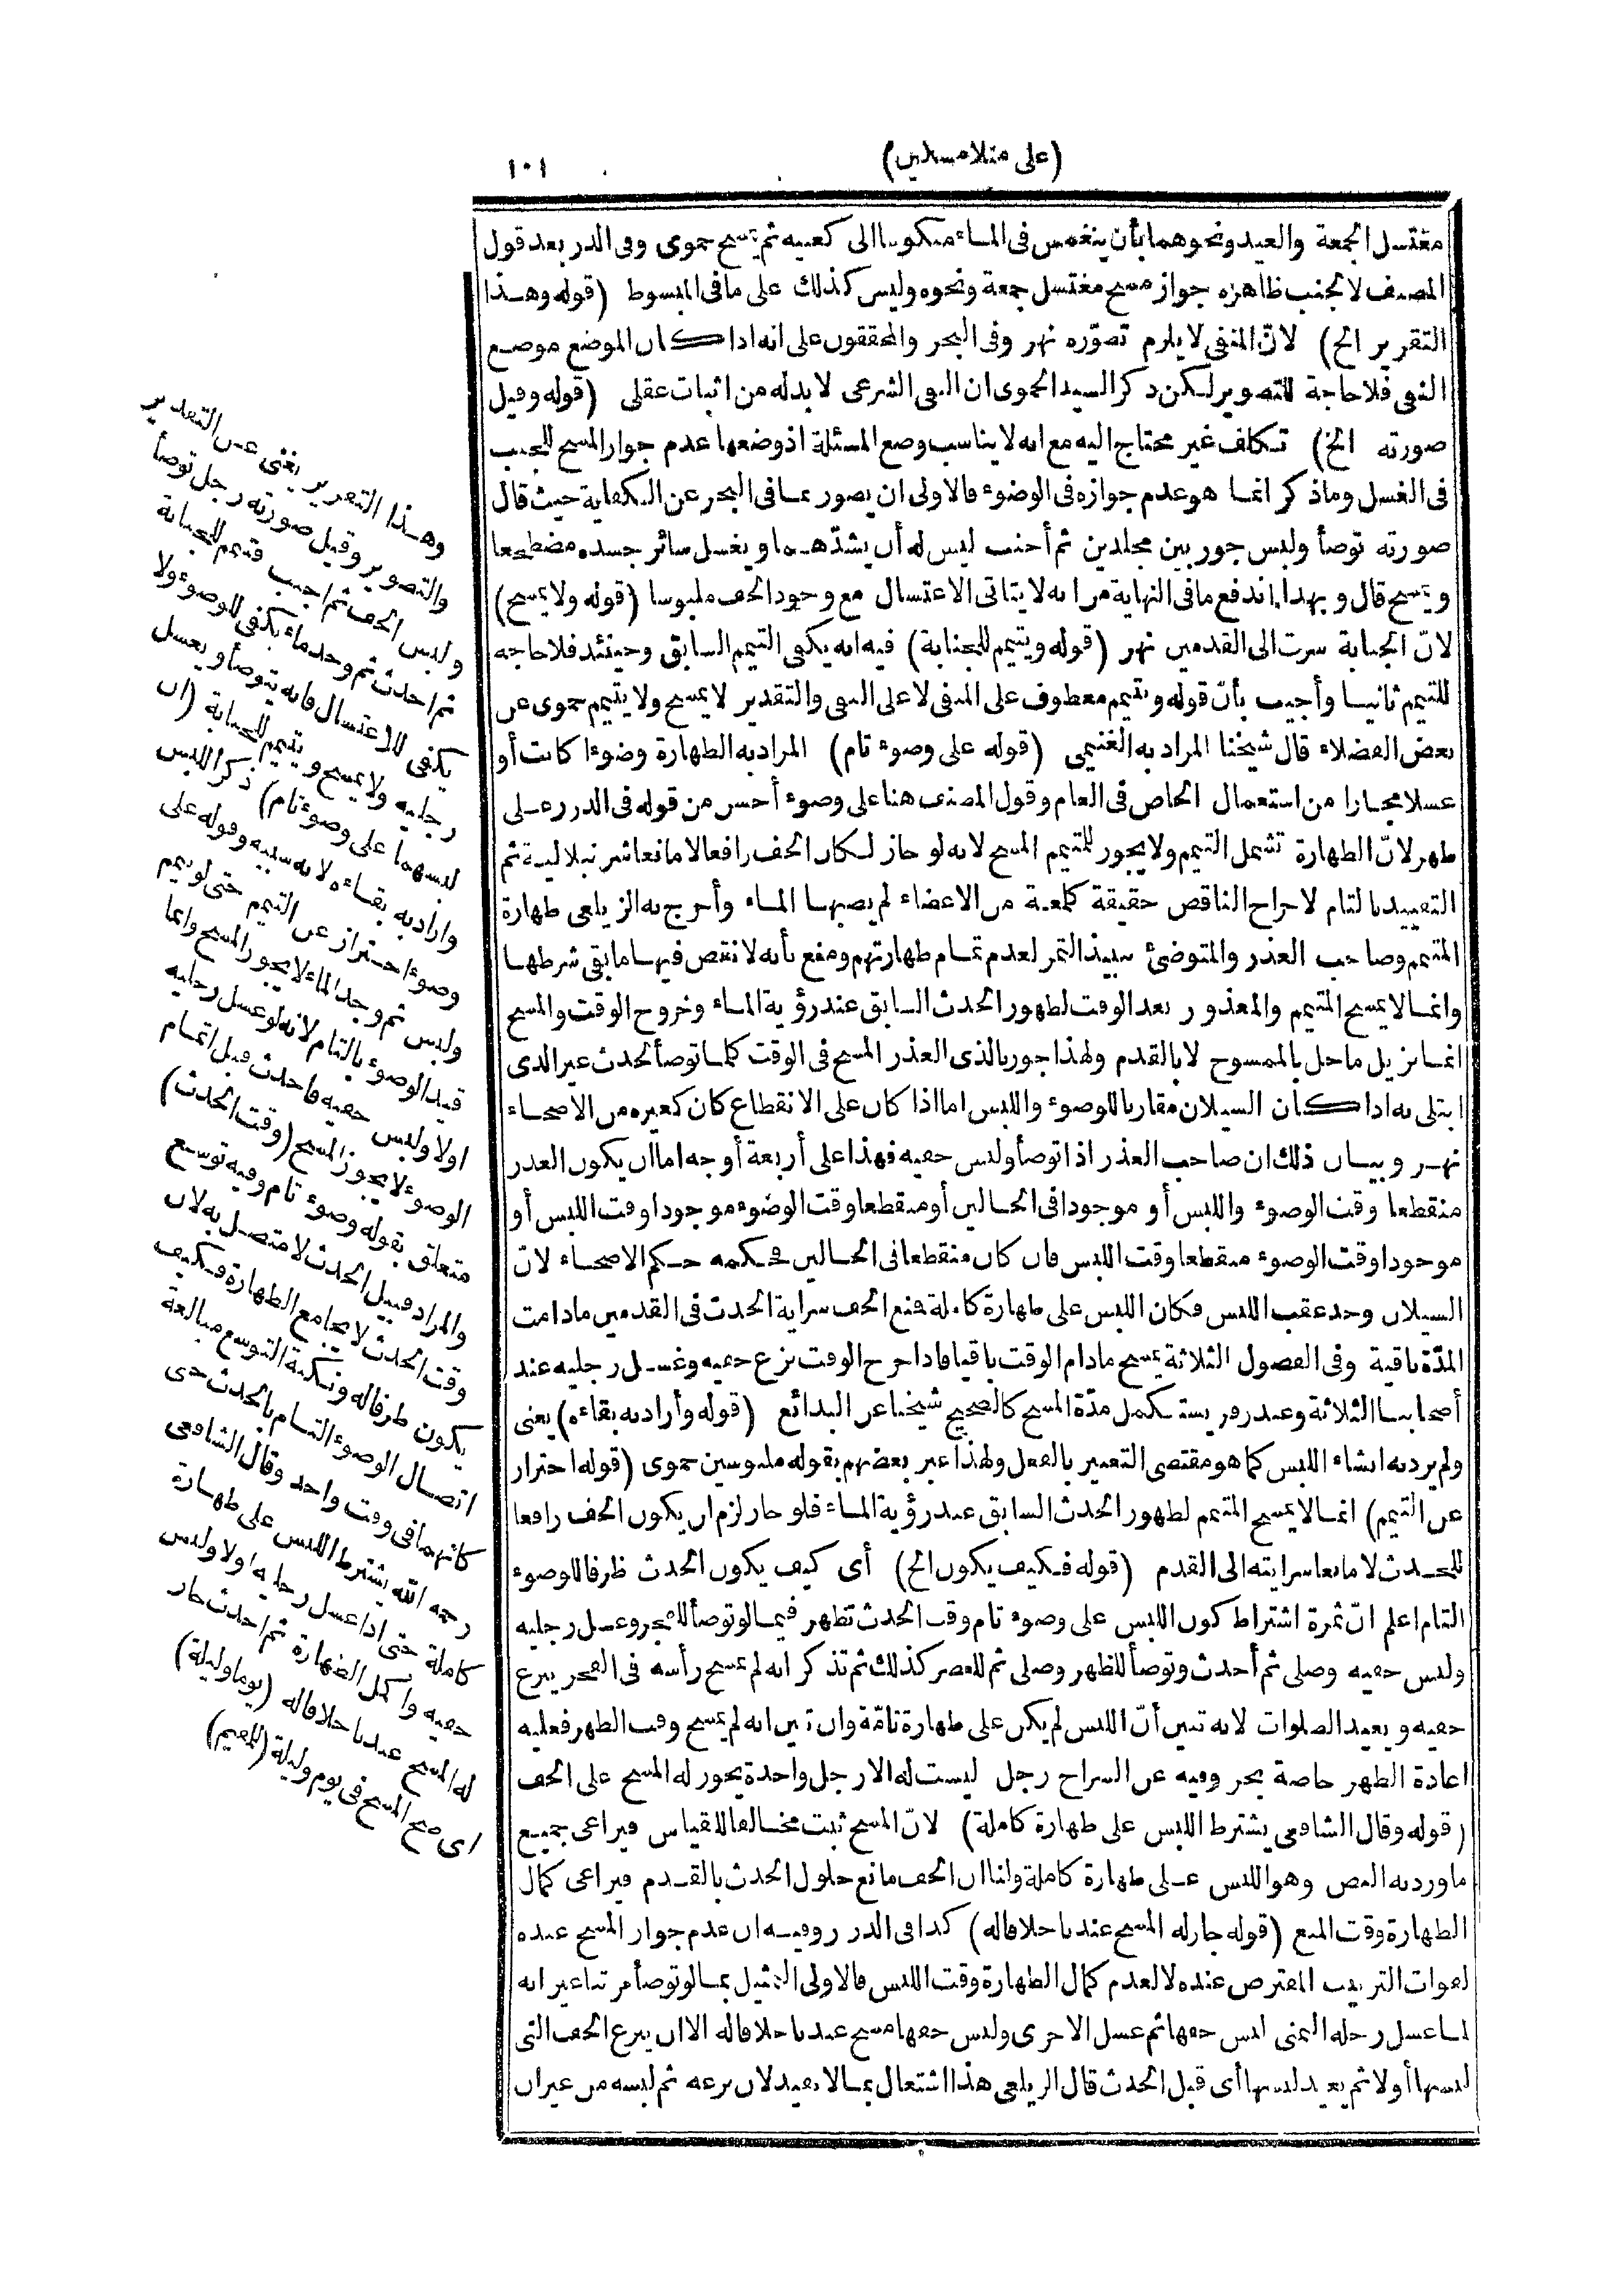 (على منلا مسكين)
١٠١
مغتسل الجمعة والعيد ونحوهما بأن ينغمس في الماء منكوسا الى كعبيه ثم يمسح حموى وفى الدر بعد قول
المصنف لا لجنب ظاهره جواز مسح مغتسل جمعة ونحوه وليس كذلك على ما فى المبسوط (قوله وهذا
التقرير الخ) لانّ المنفى لا يلزم تصوّره نهر وفى البحر والمحققون على انه اذا كان الموضع موضع
النفى فلا حاجة للتصوير لكن ذكر السيد الحموى ان النفى الشرعى لا بد له من اثبات عقلى (قوله وقيل
صورته الخ) تكلف غير محتاج اليه مع انه لا يناسب وضع المسئلة اذ وضعها عدم جواز المسح للجنب
فى الغسل وما ذكر انما هو عدم جوازه فى الوضوء فالاولى ان يصور بما فى البحر عن الكفاية حيث قال
صورته توضأ ولبس جوربين مجلدين ثم أجنب ليس له أن يشدّهما ويغسل سائر جسده مضطجعا
ويمسح قال وبهذا اندفع ما فى النهاية من انه لا يتاتى الاغتسال مع وجود الخف ملبوسا (قوله ولا يمسح)
لانّ الجنابة سرت الى القدمين نهر (قوله ويتيمم للجنابة) فيه انه يكفى التيمم السابق وحينئذ فلا حاجة
للتيمم ثانيا وأجيب بأنّ قوله ويتيمم معطوف على المنفى لا على النفى والتقدير لا يمسح ولا يتيمم حموى عن
بعض الفضلاء قال شيخنا المراد به الغنيمى (قوله على وضوء تام) المراد به الطهارة وضوءا كانت أو
غسلا مجازا من استعمال الخاص فى العام وقول المصنف هنا على وضوء أحسن من قوله فى الدرر على
طهر لانّ الطهارة تشمل التيمم ولا يجوز للمتيمم المسح لانه لو جاز لكان الخف رافعا لا مانعا شرنبلالية ثم
التقييد بالتام لاخراج الناقص حقيقة كلمعة من الاعضاء لم يصبها الماء وأخرج به الزيلعى طهارة
المتيمم وصاحب العذر والمتوضئ بنبيذ التمر لعدم تمام طهارتهم ومنع بأنه لا نقص فيها ما بقى شرطها
وانما لا يمسح المتيمم والمعذور بعد الوقت لظهور الحدث السابق عند رؤية الماء وخروج الوقت والمسح
انما يزيل ما حل بالممسوح لا بالقدم ولهذا جوز بالذى العذر المسح فى الوقت كلما توضأ لحدث غير الذى
ابتلى به اذا كان السيلان مقارنا للوضوء واللبس اما اذا كان على الانقطاع كان كغيره من الاصحاء
نهر وبيان ذلك ان صاحب العذر اذا توضأ ولبس خفيه فهذا على أربعة أوجه اما ان يكون العذر
منقطعا وقت الوضوء واللبس أو موجودا فى الحالين أو منقطعا وقت الوضوء موجودا وقت اللبس أو
موجودا وقت الوضوء منقطعا وقت اللبس فان كان منقطعا فى الحالين فحكمه حكم الاصحاء لانّ
السيلان وجد عقب اللبس فكان اللبس على طهارة كاملة فمنع الخف سراية الحدث فى القدمين ما دامت
المدّة باقية وفى الفصول الثلاثة يمسح ما دام الوقت باقيا فاذا خرج الوقت نزع خفيه وغسل رجليه عند
أصحابنا الثلاثة وعند زفر يستكمل مدّة المسح كالصحيح شيخنا عن البدائع (قوله وأراد به بقاءه) يعنى
ولم يرد به انشاء اللبس كما هو مقتضى التعبير بالفعل ولهذا عبر بعضهم بقوله ملبوسين حموى (قوله احتراز
عن التيمم) انما لا يمسح المتيمم لظهور الحدث السابق عند رؤية الماء فلو جاز لزم ان يكون الخف رافعا
للحدث لا مانعا سرايته الى القدم (قوله فكيف يكون الخ) أى كيف يكون الحدث ظرفا للوضوء
التام اعلم انّ ثمرة اشتراط كون اللبس على وضوء تام وقت الحدث تظهر فيما لو توضأ للفجر وغسل رجليه
ولبس خفيه وصلى ثم أحدث وتوضأ للظهر وصلى ثم للعصر كذلك ثم تذكر انه لم يمسح رأسه فى الفجر ينزع
خفيه ويعيد الصلوات لانه تبين أنّ اللبس لم يكن على طهارة تامّة وان تبين انه لم يمسح وقت الظهر فعليه
اعادة الظهر خاصة بحر وفيه عن السراج رجل ليست له الا رجل واحدة يجوز له المسح على الخف
(قوله وقال الشافعى يشترط اللبس على طهارة كاملة) لانّ المسح ثبت مخالفا للقياس فيراعى جميع
ما ورد به النص وهو اللبس على طهارة كاملة ولنا ان الخف مانع حلول الحدث بالقدم فيراعى كمال
الطهارة وقت المنع (قوله جاز له المسح عندنا خلافا له) كذا فى الدرر وفيه ان عدم جواز المسح عنده
لفوات الترتيب المفترض عنده لا لعدم كمال الطهارة وقت اللبس فالاولى التمثيل بما لو توضأ مرتبا غير انه
لما غسل رجله اليمنى لبس خفها ثم غسل الاخرى ولبس خفها مسح عندنا خلافا له الا ان ينزع الخف التى
لبسها أولا ثم يعيد لبسها أى قبل الحدث قال الزيلعى هذا اشتغال بما لا يفيد لان نزعه ثم لبسه من غير ان
وهذا التقرير يغنى عن التقدير
والتصوير وقيل صورته رجل توضأ
ولبس الخف ثم اجنب فتيمم للجنابة
ثم احدث ثم وجد ماء يكفى للوضوء ولا
يكفى للاغتسال فانه يتوضأ ويغسل
رجليه ولا يمسح ويتيمم للجنابة (ان
لبسهما على وضوء تام) ذكر اللبس
واراد به بقاءه لانه سببه وقوله على
وضوء احتراز عن التيمم حتى لو تيمم
ولبس ثم وجد الماء لا يجوز المسح وانما
قيد الوضوء بالتام لانه لو غسل رجليه
اولا ولبس خفيه فاحدث قبل اتمام
الوضوء لا يجوز المسح (وقت الحدث)
متعلق بقوله وضوء تام وفيه توسيع
والمراد قبيل الحدث لا متصل به لان
وقت الحدث لا يجامع الطهارة فكيف
يكون ظرفا له ونكتة التوسع مبالغة
اتصال الوضوء التام بالحدث حتى
كانهما فى وقت واحد وقال الشافعى
رحمه الله يشترط اللبس على طهارة
كاملة حتى اذا غسل رجليه اولا ولبس
خفيه واكمل الطهارة ثم احدث جاز
له المسح عندنا خلافا له (يوما وليلة)
اى صح المسح فى يوم وليلة (للمقيم)